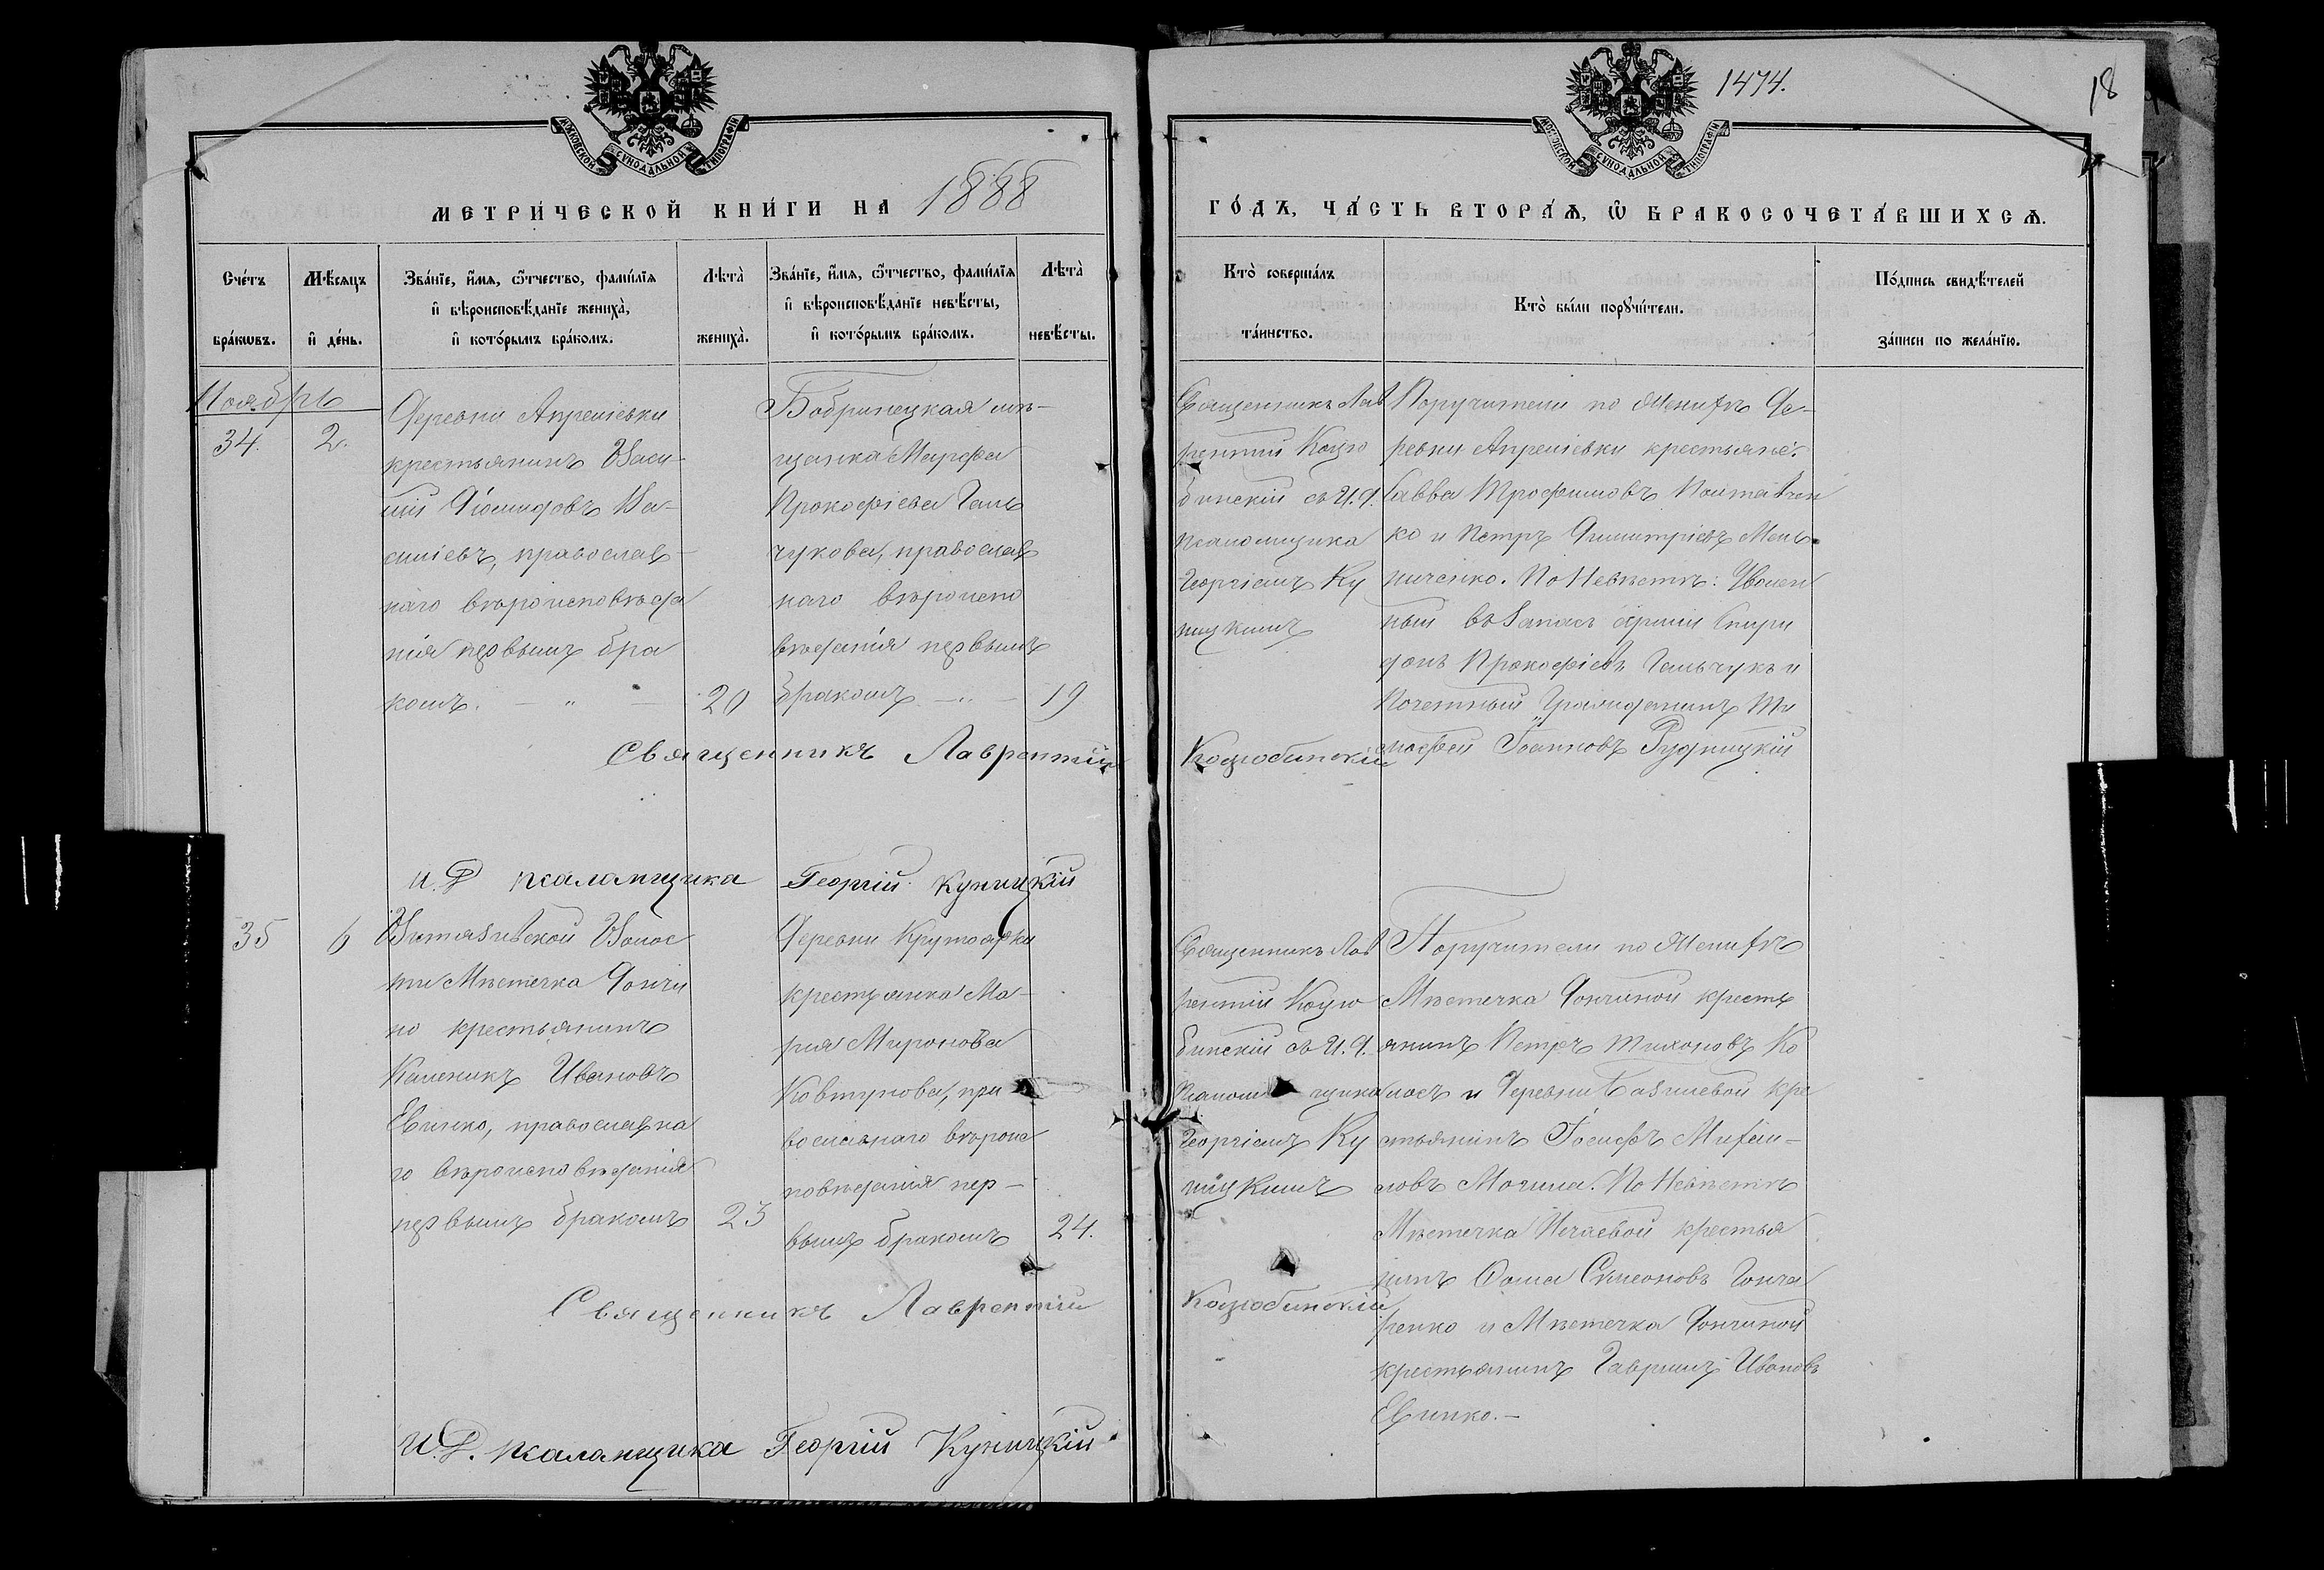 1474.
18
МОСКОВСКОЙ СѴНОДАЛЬНОЙ ТИПОГРАФІИ
МОСКОВСКОЙ СѴНОДАЛЬНОЙ ТИПОГРАФІИ
МЕТРИ́ЧЕСКОЙ КНИ́ГИ НА 1888
ГО́ДЪ, ЧА́СТЬ ВТОРА́Ѧ, Ѿ БРАКОСОЧЕТА́ВШИХСѦ.
Сче́тъ
бра́кѡвъ.
Мѣ́сяцъ
и҆ де́нь.
Зва́нїе, и҆́мя, ѻ҆́тчество, фами́лїя
и҆ вѣроисповѣ́данїе жениха̀,
и҆ кото́рымъ бра́комъ.
Лѣ́та
жениха̀.
Зва́нїе, и҆́мя, ѻ҆́тчество, фами́лїя
и҆ вѣроисповѣ́данїе невѣ́сты,
и҆ кото́рымъ бра́комъ.
Лѣ́та
невѣ́сты.
Кто̀ соверша́лъ
та́инство.
Кто̀ бы́ли порꙋчи́тели.
По́дпись свидѣ́телей
за́писи по жела́нїю.
Ноябрь
34.
2.
Деревни Апреліевки
крестьянинъ Васи-
лій Діомидовъ Ва-
силіевъ, православ-
наго вѣроисповѣда
нія первымъ бра
комъ. — " —
20
Бобринецкая мѣ-
щанка Марфа
Прокофіева Галь
чукова, православ
наго вѣроиспо
вѣданія первымъ
бракомъ — " —
19
Священникъ Лав
рентій Коцю
бинскій съ И. Д.
псаломщика
Георгіемъ Ку
ницкимъ
Поручители по Женихѣ Де-
ревни Апреліевки крестьяне:
Савва Трофимовъ Полтавчен
ко и Петръ Димитріевъ Мель-
ниченко. По Невѣстѣ: Уволен
ный въ Запасъ арміи Спири
донъ Прокофіевъ Гальчукъ и
Почетный Гражданинъ Ти
мофей Іоанновъ Рудницкій
Священникъ Лаврентій Коцюбинскій
И. Д. псаломщика Георгій Куницкій
35
6
Витязевской Волос
ти Мѣстечка Доичи
но крестьянинъ
Каленикъ Ивановъ
Евинко, православна
го вѣроисповѣданія
первымъ бракомъ
23
Деревни Крутоярки
крестьянка Ма-
рія Миронова
Ковтунова, пра
вославнаго вѣроис
повѣданія пер-
вымъ бракомъ
24.
Священникъ Лав
рентій Коцю
бинскій съ И. Д.
псаломщика
Георгіемъ Ку
ницкимъ
Поручители по Женихѣ
Мѣстечка крестья
янинъ Петръ Тихоновъ Ко
лосъ и Деревни кре
стьянинъ Іосифъ Михаи-
ловъ Могила. По Невѣстѣ
Мѣстечка Нечаевой крестья
нинъ Ѳома Симеоновъ Гонча
ренко и Мѣстечка
крестьянинъ Гавріилъ Ивановъ
Евинко. —
Священникъ Лаврентій Коцюбинскій
И. Д. псаломщика Георгій Куницкій